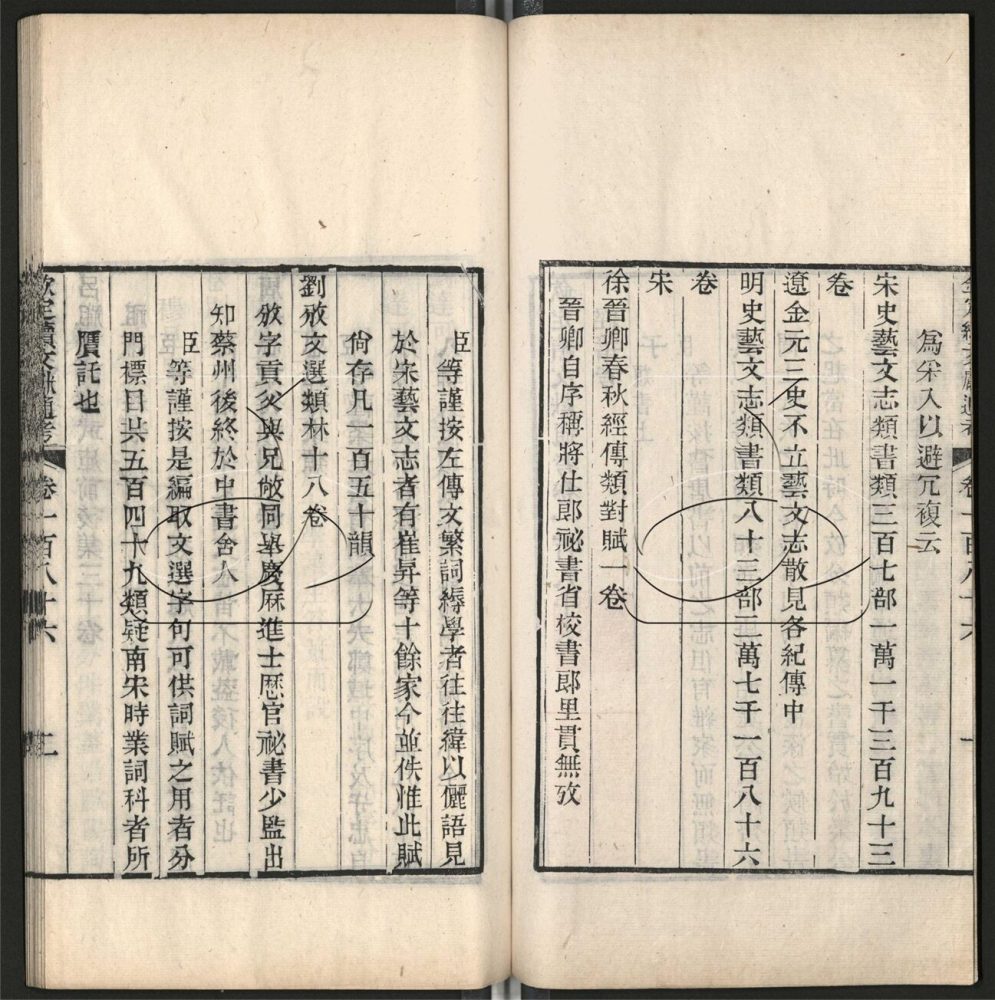 爲宋入以避冗複云
宋史藝文志類書類三百七部一萬一千三百九十三
卷
遼金元三史不立藝文志散見各紀傳中
明史藝文志類書類八十三部二萬七千一百八十六
卷
宋
徐晉卿春秋經傳類對賦一卷
晉卿自序稱將仕郎祕書省校書郎里貫無攷
臣等謹按左傳文繁詞縟學者往往緯以儷語見
於宋藝文志者有崔昇等十餘家今並佚惟此賦
尙存凡一百五十韻
劉攽文選類林十八卷
攽字貢父與兄敞同舉慶厤進士厯官祕書少監出
知蔡州後終於中書舍人
臣等謹按是編取文選字句可供詞賦之用者分
門標目共五百四十九類疑南宋時業詞科者所
贗託也
欽定續文獻通考 卷一百八十六 二